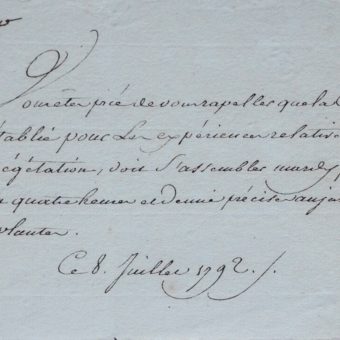 Vous êtes prié de vous rapeller que la
établie pour les expériences relative
végétation, doit s'assembler mardy
à quatre heures et demie précise au jar
plantes.
Ce 8. Juillet 1792.